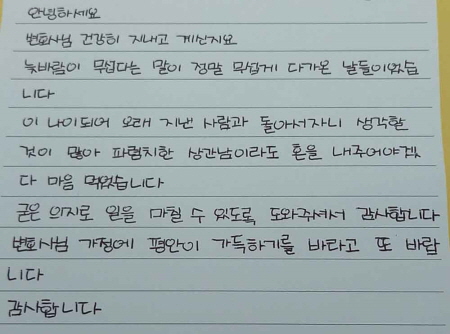 안녕하세요
변호사님 건강히 지내고 계신지요
늦바람이 무섭다는 말이 정말 무섭게 다가온 날들이었습
니다
이 나이되어 오래 지낸 사람과 돌아서자니 생각할
것이 많아 파렴치한 상간남이라도 혼을 내주어야겠
다 마음 먹었습니다
굳은 의지로 일을 마칠 수 있도록 도와주셔서 감사합니다
변호사님 가정에 평안이 가득하기를 바라고 또 바랍
니다
감사합니다